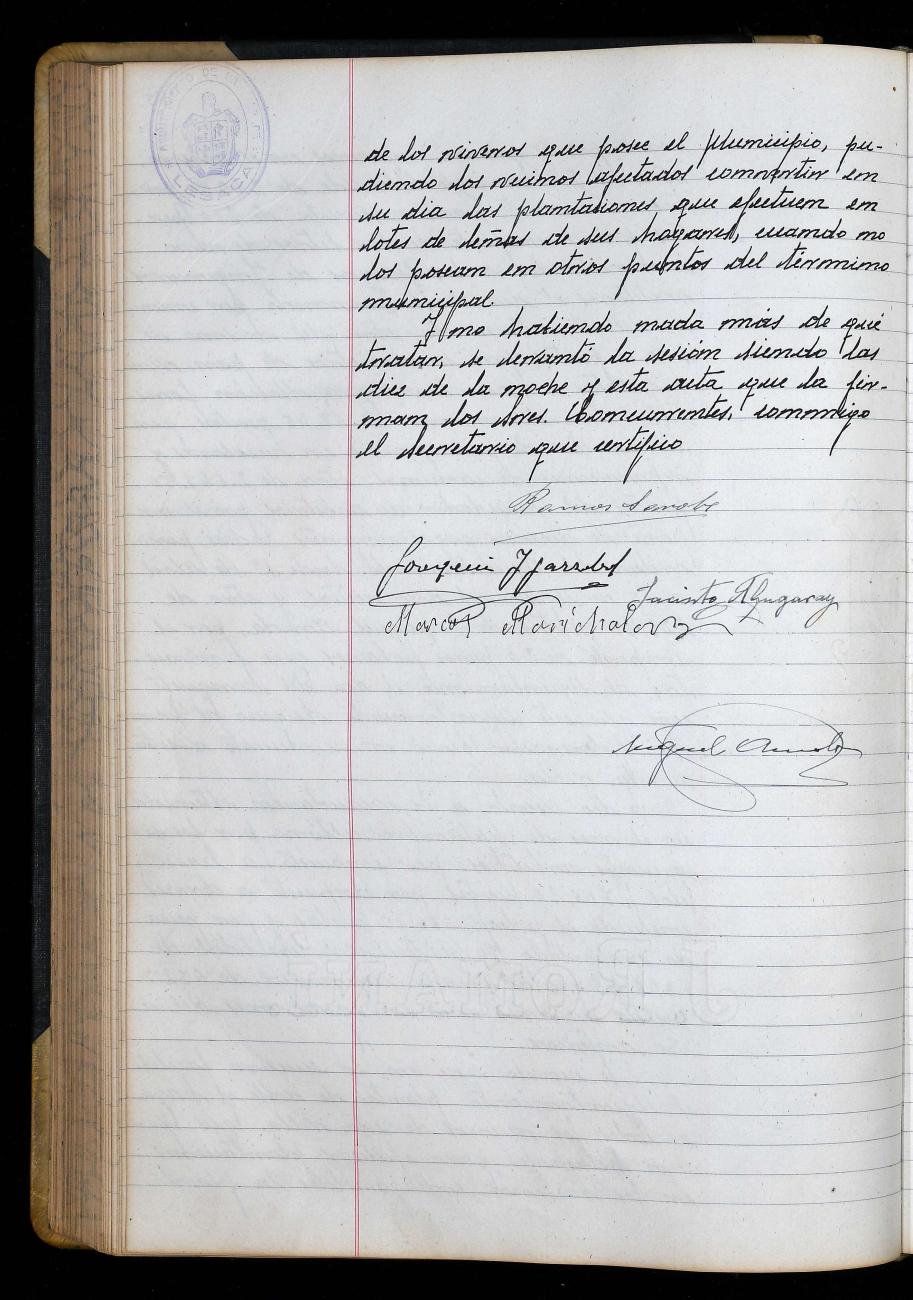 AYUNTAMIENTO DE
LESACA
de los viveros que posee el Municipio, pu-
diendo los vecinos afectados convertir en
su dia las plantaciones que efectuen en
lotes de leñas de sus hogares, cuando no
los posean en otros puntos del término
municipal
Y no habiendo nada más de qué
tratar, se levantó la sesión siendo las
diez de la noche y esta acta que la fir-
man los Sres. Concurrentes, conmigo
el secretario que certifico
Ramos Sarobe
Joaquin
Jacinto
Marcos
Miguel